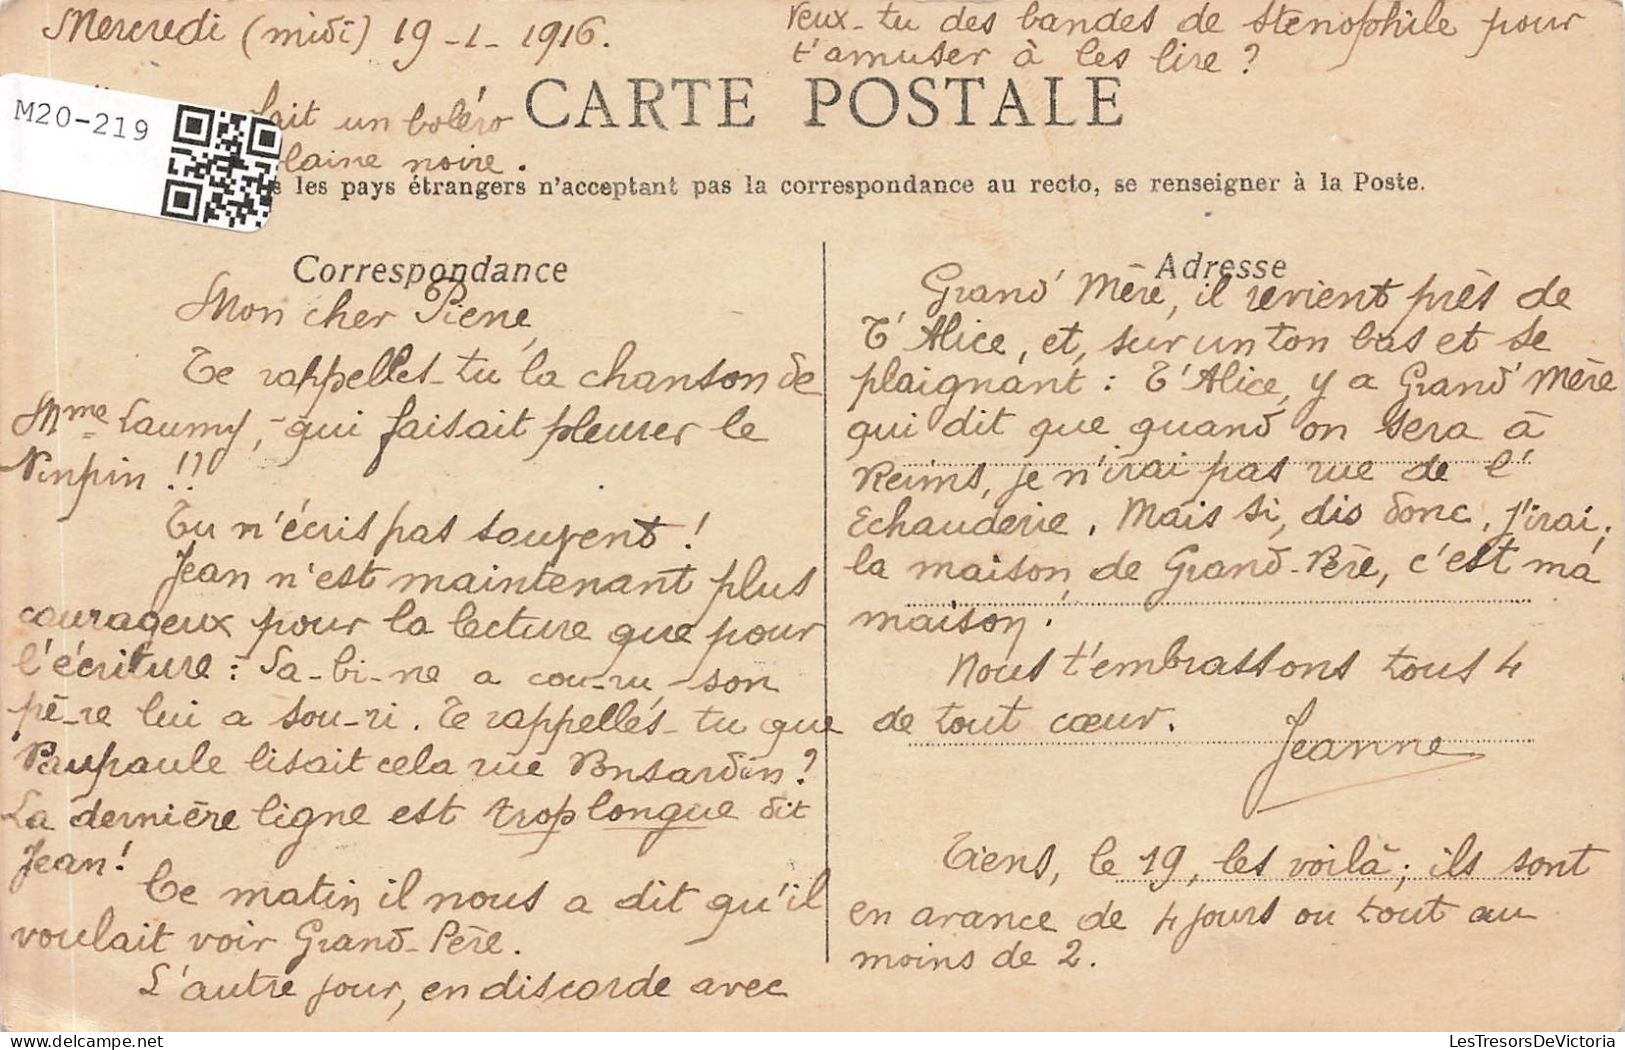 Mercredi (midi) 19-1-1916.
Veux-tu des bandes de Sténophile pour
t'amuser à les lire ?
M20-219
fait un boléro
laine noire.
CARTE POSTALE
s les pays étrangers n'acceptant pas la correspondance au recto, se renseigner à la Poste.
Correspondance
Mon cher Pierre,
Te rappelles-tu la chanson de
Mme Laumy, qui faisait pleurer le
Ninpin !!
Tu n'écris pas souvent !
Jean n'est maintenant plus
courageux pour la lecture que pour
l'écriture : Sa-bi-ne a cou-ru son
pè-re lui a sou-ri. Te rappelles-tu que
Paupaule lisait cela rue Ponsardin ?
La dernière ligne est trop longue dit
Jean !
Ce matin il nous a dit qu'il
voulait voir Grand-Père.
L'autre jour, en discorde avec
Adresse
Grand' Mère, il revient près de
T' Alice, et, sur un ton bas et se
plaignant : T' Alice, y a Grand' Mère
qui dit que quand on sera à
Reims, je n'irai pas rue de l'
Echauderie. Mais si, dis donc, j'irai ;
la maison de Grand-Père, c'est ma
maison !
Nous t'embrassons tous 4
de tout cœur.
Jeanne
Tiens, le 19, les voilà ; ils sont
en avance de 4 jours ou tout au
moins de 2.
LesTresorsDeVictoria